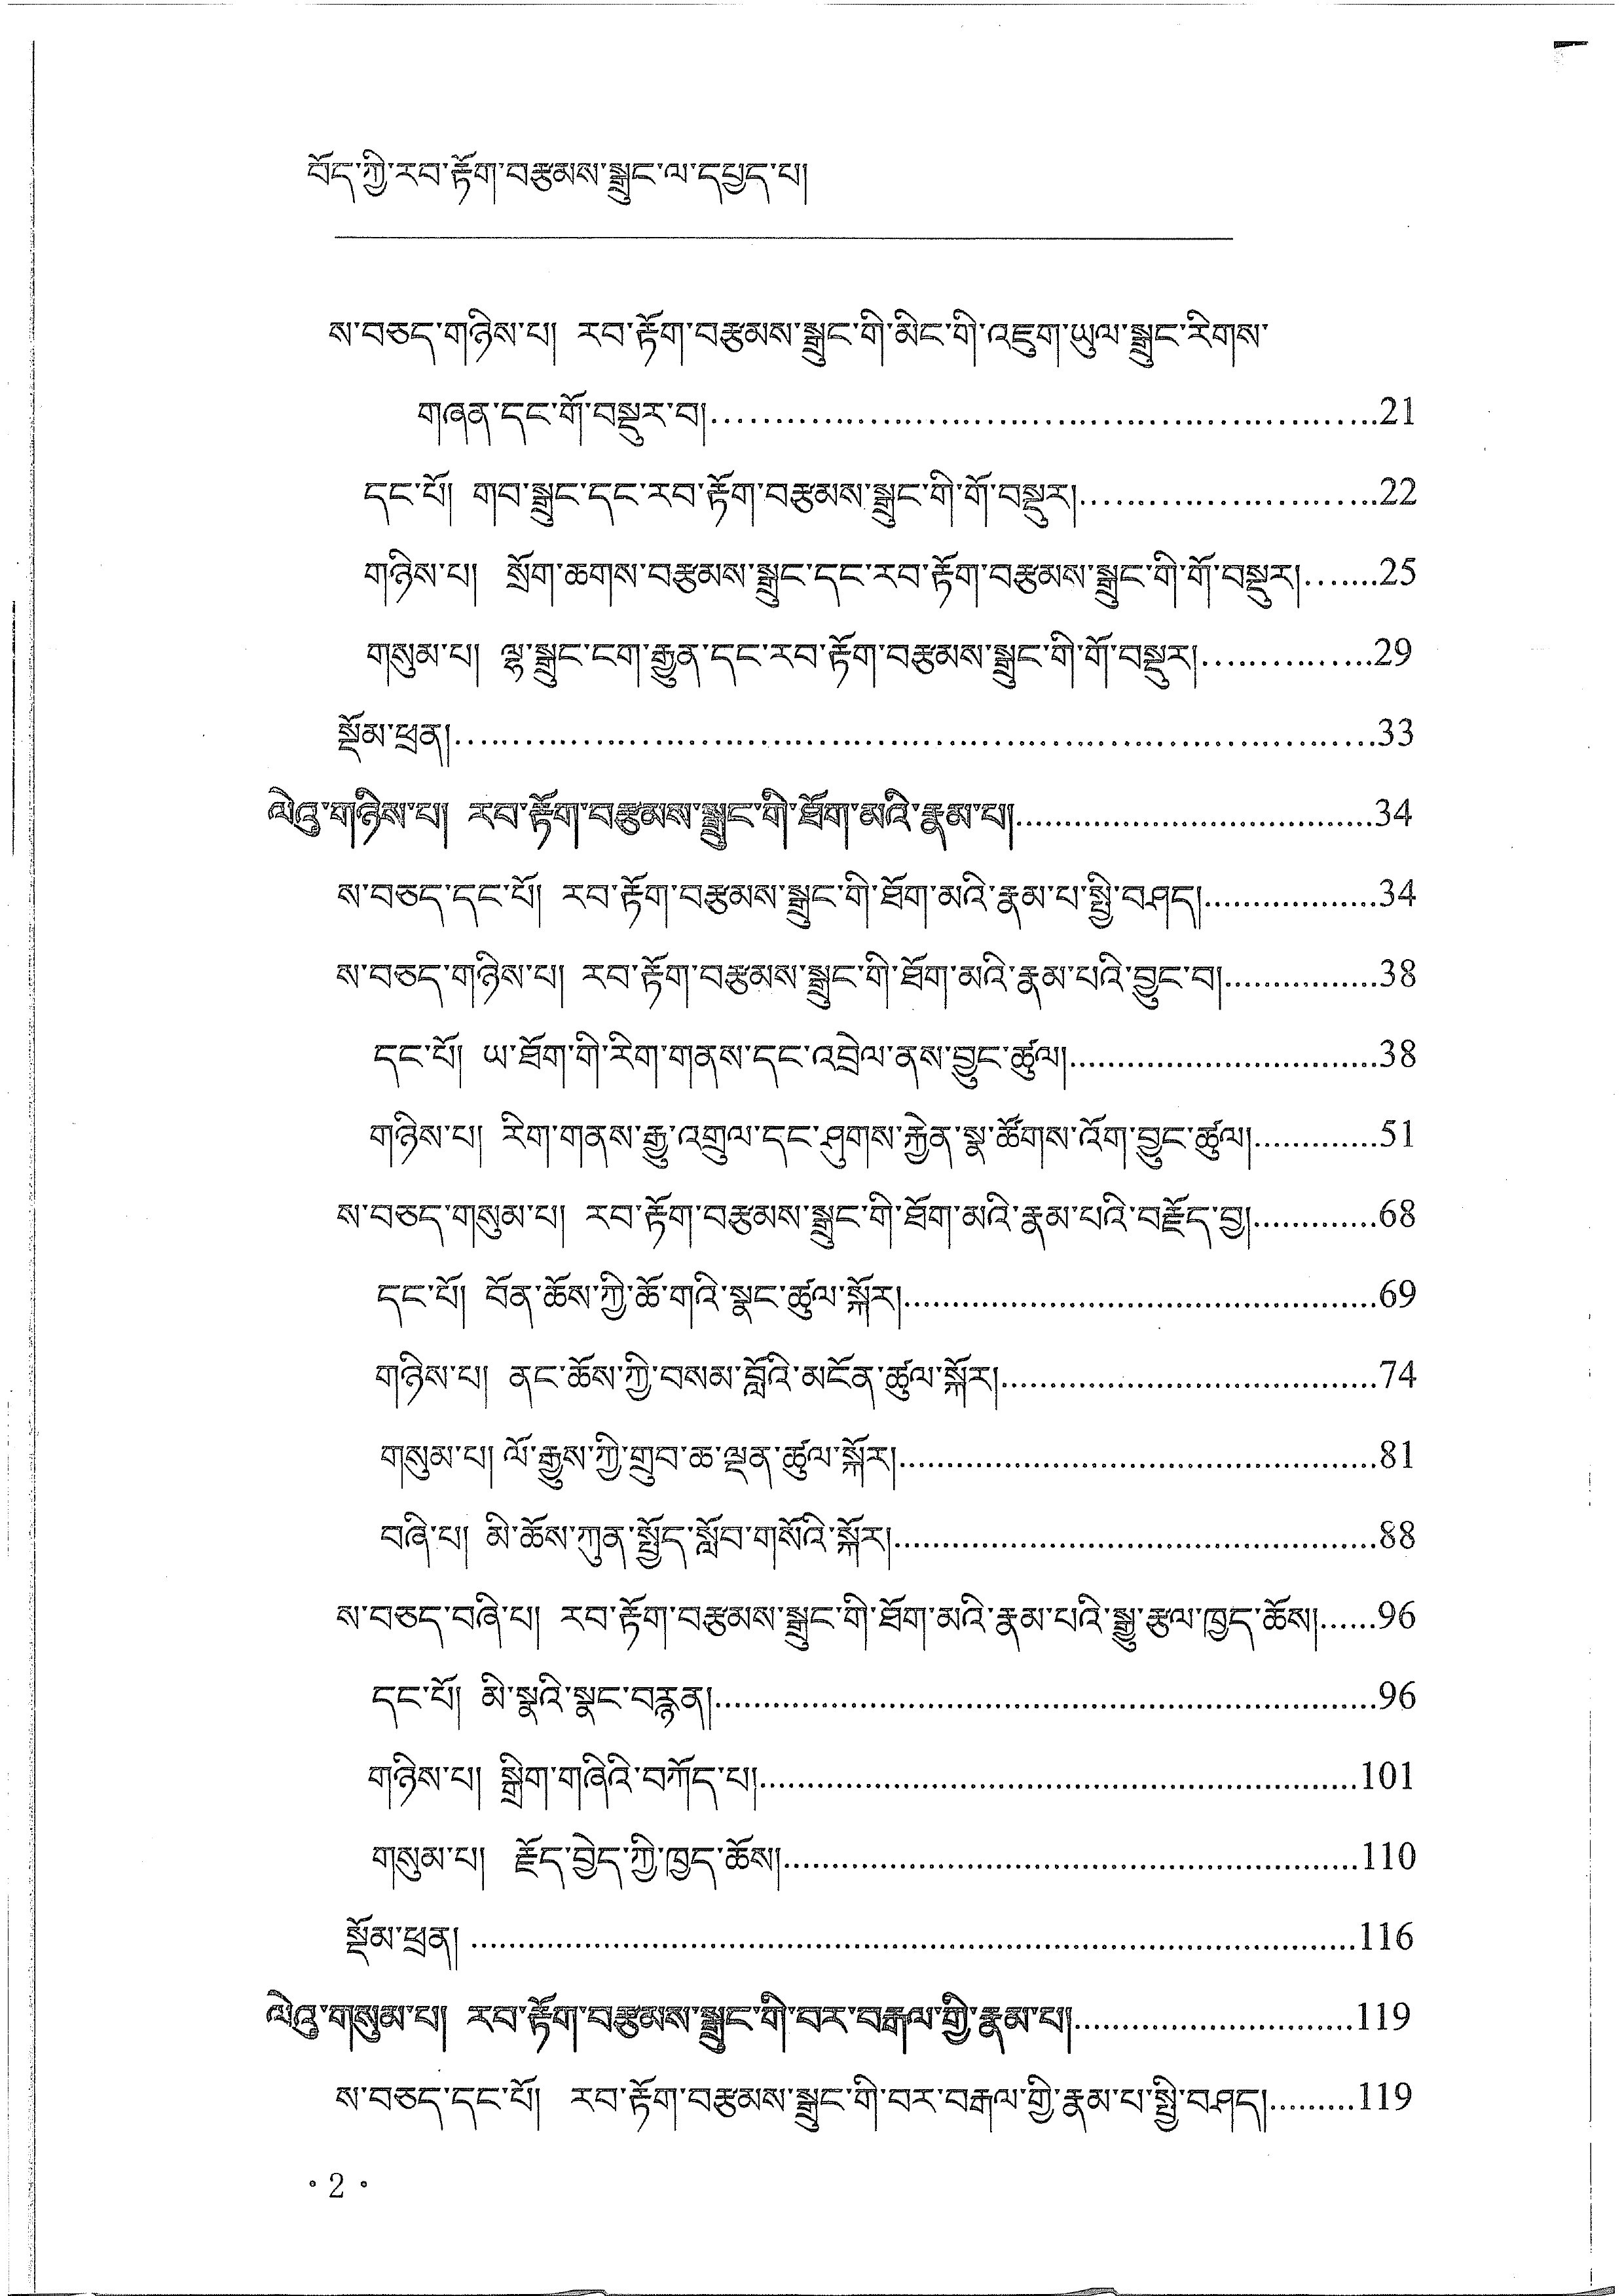 བོད་ཀྱི་རབ་རྟོག་བརྩམས་སྒྲུང་ལ་དཔྱད་པ།
ས་བཅད་གཉིས་པ། རབ་རྟོག་བརྩམས་སྒྲུང་གི་མིང་གི་འཇུག་ཡུལ་སྒྲུང་རིགས་
གཞན་དང་གོ་བསྡུར་བ།........................................................21
དང་པོ། གབ་སྒྲུང་དང་རབ་རྟོག་བརྩམས་སྒྲུང་གི་གོ་བསྡུར།.........................22
གཉིས་པ། སྲོག་ཆགས་བརྩམས་སྒྲུང་དང་རབ་རྟོག་བརྩམས་སྒྲུང་གི་གོ་བསྡུར།.......25
གསུམ་པ། ལྷ་སྒྲུང་ངག་རྒྱུན་དང་རབ་རྟོག་བརྩམས་སྒྲུང་གི་གོ་བསྡུར།...............29
སྡོམ་ཕྲན།..............................................................................33
ལེའུ་གཉིས་པ། རབ་རྟོག་བརྩམས་སྒྲུང་གི་ཐོག་མའི་རྣམ་པ།.....................................34
ས་བཅད་དང་པོ། རབ་རྟོག་བརྩམས་སྒྲུང་གི་ཐོག་མའི་རྣམ་པ་སྤྱི་བཤད།..................34
ས་བཅད་གཉིས་པ། རབ་རྟོག་བརྩམས་སྒྲུང་གི་ཐོག་མའི་རྣམ་པའི་བྱུང་བ།................38
དང་པོ། ཡ་ཐོག་གི་རིག་གནས་དང་འབྲེལ་ནས་བྱུང་ཚུལ།................................38
གཉིས་པ། རིག་གནས་རྒྱུ་འགྲུལ་དང་ཤུགས་རྐྱེན་སྣ་ཚོགས་འོག་བྱུང་ཚུལ།.............51
ས་བཅད་གསུམ་པ། རབ་རྟོག་བརྩམས་སྒྲུང་གི་ཐོག་མའི་རྣམ་པའི་བརྗོད་བྱ།.............68
དང་པོ། བོན་ཆོས་ཀྱི་ཆོ་གའི་སྣང་ཚུལ་སྐོར།.................................................69
གཉིས་པ། ནང་ཆོས་ཀྱི་བསམ་བློའི་མངོན་ཚུལ་སྐོར།.......................................74
གསུམ་པ། ལོ་རྒྱུས་ཀྱི་གྲུབ་ཆ་ལྡན་ཚུལ་སྐོར།.................................................81
བཞི་པ། མི་ཆོས་ཀུན་སྤྱོད་སློབ་གསོའི་སྐོར།.................................................88
ས་བཅད་བཞི་པ། རབ་རྟོག་བརྩམས་སྒྲུང་གི་ཐོག་མའི་རྣམ་པའི་སྒྱུ་རྩལ་ཁྱད་ཆོས།......96
དང་པོ། མི་སྣའི་སྣང་བརྙན།....................................................................96
གཉིས་པ། སྒྲིག་གཞིའི་བཀོད་པ།.............................................................101
གསུམ་པ། རྗོད་བྱེད་ཀྱི་ཁྱད་ཆོས།...........................................................110
སྡོམ་ཕྲན། ..........................................................................................116
ལེའུ་གསུམ་པ། རབ་རྟོག་བརྩམས་སྒྲུང་གི་བར་བརྒལ་གྱི་རྣམ་པ།.............................119
ས་བཅད་དང་པོ། རབ་རྟོག་བརྩམས་སྒྲུང་གི་བར་བརྒལ་གྱི་རྣམ་པ་སྤྱི་བཤད།.........119
• 2 •